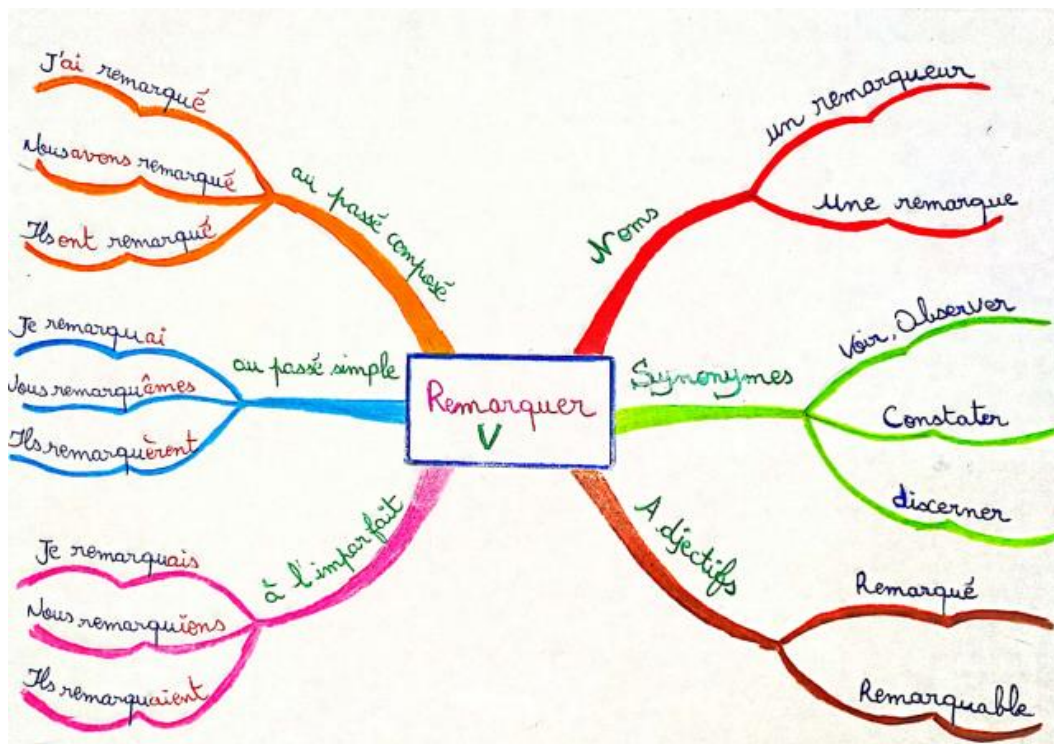 Remarquer
V
au passé composé
J'ai remarqué
Nous avons remarqué
Ils ont remarqué
au passé simple
Je remarquai
Nous remarquâmes
Ils remarquèrent
à l'imparfait
Je remarquais
Nous remarquions
Ils remarquaient
Noms
un remarqueur
Une remarque
Synonymes
Voir, Observer
Constater
discerner
Adjectifs
Remarqué
Remarquable